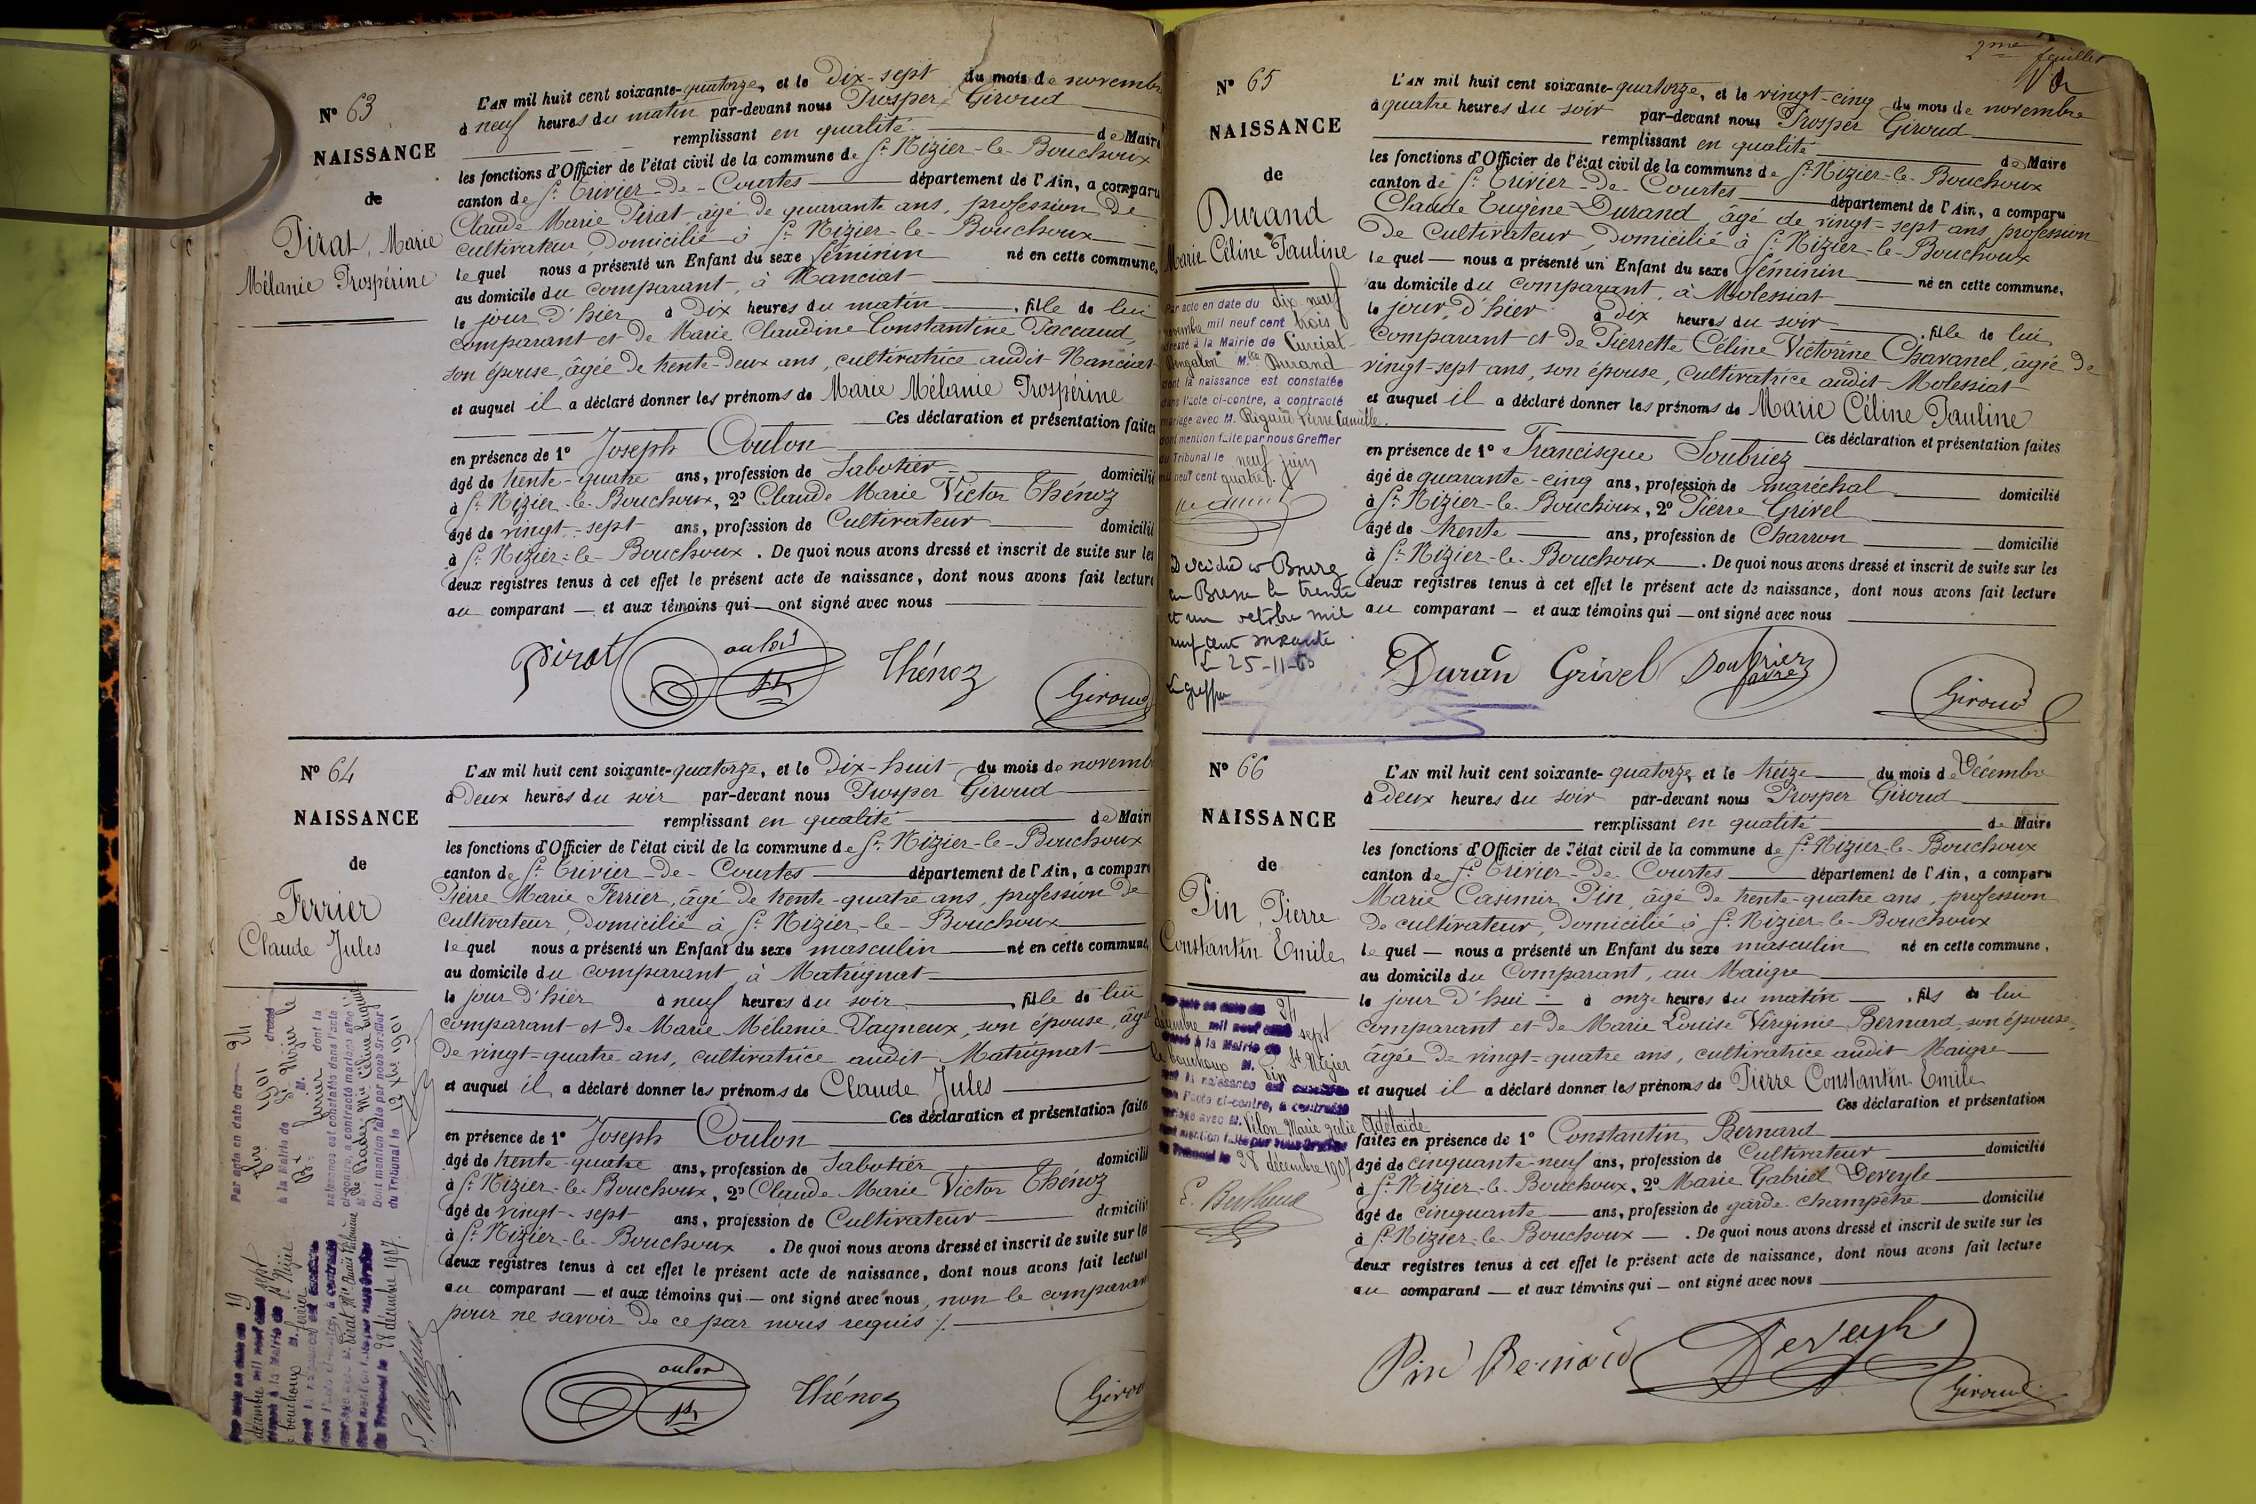 N° 63
NAISSANCE
de
Pirat, Marie
Mélanie Prospérine
L'AN mil huit cent soixante-quatorze, et le Dix-sept du mois de novembre
à neuf heures du matin par-devant nous Prosper Giroud
remplissant en qualité de Maire
les fonctions d'Officier de l'état civil de la commune de St Nizier-le-Bouchoux
canton de St Trivier-de-Courtes département de l'Ain, a comparu
Claude Marie Pirat âgé de quarante ans, profession de
cultivateur, domicilié à St Nizier-le-Bouchoux
lequel nous a présenté un Enfant du sexe féminin né en cette commune,
au domicile du comparant, à Nanciat
le jour d'hier à dix heures du matin, fille de lui
comparant et de Marie Claudine Constantine Paccaud,
son épouse, âgée de trente-deux ans, cultivatrice audit Nanciat
et auquel il a déclaré donner les prénoms de Marie Mélanie Prospérine
Ces déclaration et présentation faites
en présence de 1° Joseph Coulon
âgé de trente-quatre ans, profession de Sabotier domicilié
à St Nizier-le-Bouchoux, 2° Claude Marie Victor Thénoz
âgé de vingt-sept ans, profession de Cultivateur domicilié
à St Nizier-le-Bouchoux. De quoi nous avons dressé et inscrit de suite sur les
deux registres tenus à cet effet le présent acte de naissance, dont nous avons fait lecture
au comparant et aux témoins qui ont signé avec nous
Pirat oulon Thénoz Giroud
N° 64
NAISSANCE
de
Ferrier
Claude Jules
Par acte en date du 24
1901 dressé
à la Mairie de St Nizier le
Bx M. Ferrier dont la
naissance est constatée dans l'acte
ci-contre, a contracté mariage avec
Dont mention faite par nous Greffier
du Tribunal le 12 Xbre 1901
Par acte en date du 19
décembre mil neuf cent sept
dressé à la Mairie de St Nizier
le bouchoux M. Ferrier
du Tribunal le 28 décembre 1907.
L'AN mil huit cent soixante-quatorze, et le Dix-huit du mois de novembre
à Deux heures du soir par-devant nous Prosper Giroud
remplissant en qualité de Maire
les fonctions d'Officier de l'état civil de la commune de St Nizier-le-Bouchoux
canton de St Trivier-de-Courtes département de l'Ain, a comparu
Pierre Marie Ferrier, âgé de trente-quatre ans, profession de
cultivateur, domicilié à St Nizier-le-Bouchoux
lequel nous a présenté un Enfant du sexe masculin né en cette commune,
au domicile du comparant, à Matrignat
le jour d'hier à neuf heures du soir, fille de lui
comparant et de Marie Mélanie Pagneux, son épouse, âgée
de vingt-quatre ans, cultivatrice audit Matrignat
et auquel il a déclaré donner les prénoms de Claude Jules
Ces déclaration et présentation faites
en présence de 1° Joseph Coulon
âgé de trente-quatre ans, profession de Sabotier domicilié
à St Nizier-le-Bouchoux, 2° Claude Marie Victor Thénoz
âgé de vingt-sept ans, profession de Cultivateur domicilié
à St Nizier-le-Bouchoux. De quoi nous avons dressé et inscrit de suite sur les
deux registres tenus à cet effet le présent acte de naissance, dont nous avons fait lecture
au comparant et aux témoins qui ont signé avec nous, non le comparant
pour ne savoir de ce par nous requis /.
oulon Thénoz Giroud
2me feuillet
N° 65
NAISSANCE
de
Durand
Marie Céline Pauline
Par acte en date du dix neuf
novembre mil neuf cent trois
dressé à la Mairie de Curciat
Dongalon Mlle Durand
dont la naissance est constatée
dans l'acte ci-contre, a contracté
mariage avec M. Rigaud Pierre Camille.
dont mention faite par nous Greffier
du Tribunal le neuf juin
mil neuf cent quatre.
Décédée à Bourg
en Bresse le trente
et un octobre mil
neuf cent soixante
Le 25-11-60
Le greffier
L'AN mil huit cent soixante-quatorze, et le vingt-cinq du mois de novembre
à quatre heures du soir par-devant nous Prosper Giroud
remplissant en qualité de Maire
les fonctions d'Officier de l'état civil de la commune de St Nizier-le-Bouchoux
canton de St Trivier-de-Courtes département de l'Ain, a comparu
Claude Eugène Durand, âgé de vingt-sept ans profession
de Cultivateur, domicilié à St Nizier-le-Bouchoux
lequel nous a présenté un Enfant du sexe féminin né en cette commune,
au domicile du comparant, à Molessiat
le jour d'hier à dix heures du soir, fille de lui
comparant et de Pierrette Céline Victorine Chavanel, âgée de
vingt-sept ans, son épouse, cultivatrice audit Molessiat
et auquel il a déclaré donner les prénoms de Marie Céline Pauline
Ces déclaration et présentation faites
en présence de 1° Francisque Soubriez
âgé de quarante-cinq ans, profession de maréchal domicilié
à St Nizier-le-Bouchoux, 2° Pierre Grivel
âgé de trente ans, profession de Charron domicilié
à St Nizier-le-Bouchoux. De quoi nous avons dressé et inscrit de suite sur les
deux registres tenus à cet effet le présent acte de naissance, dont nous avons fait lecture
au comparant et aux témoins qui ont signé avec nous
Duran Grivel Giroud
N° 66
NAISSANCE
de
Pin, Pierre
Constantin Emile
Par acte en date du 24
décembre mil neuf cent sept
dressé à la Mairie de St Nizier
le bouchoux M. Pin
dont la naissance est constatée
dans l'acte ci-contre, a contracté
mariage avec M. Velon Marie Julie Adélaide
dont mention faite par nous Greffier
du Tribunal le 28 décembre 1907
L'AN mil huit cent soixante-quatorze, et le treize du mois de Décembre
à Deux heures du soir par-devant nous Prosper Giroud
remplissant en qualité de Maire
les fonctions d'Officier de l'état civil de la commune de St Nizier-le-Bouchoux
canton de St Trivier-de-Courtes département de l'Ain, a comparu
Marie Casimir Pin, âgé de trente-quatre ans, profession
de cultivateur, domicilié à St Nizier-le-Bouchoux
lequel nous a présenté un Enfant du sexe masculin né en cette commune,
au domicile du Comparant, au Maigre
le jour d'hui à onze heures du matin, fils de lui
comparant et de Marie Louise Virginie Bernard, son épouse,
âgée de vingt-quatre ans, cultivatrice audit Maigre
et auquel il a déclaré donner les prénoms de Pierre Constantin Emile
Ces déclaration et présentation
faites en présence de 1° Constantin Bernard
âgé de cinquante-neuf ans, profession de Cultivateur domicilié
à St Nizier-le-Bouchoux, 2° Marie Gabriel Deveyle
âgé de cinquante ans, profession de garde champêtre domicilié
à St Nizier-le-Bouchoux. De quoi nous avons dressé et inscrit de suite sur les
deux registres tenus à cet effet le présent acte de naissance, dont nous avons fait lecture
au comparant et aux témoins qui ont signé avec nous
Pin Bernard Deveyle Giroud